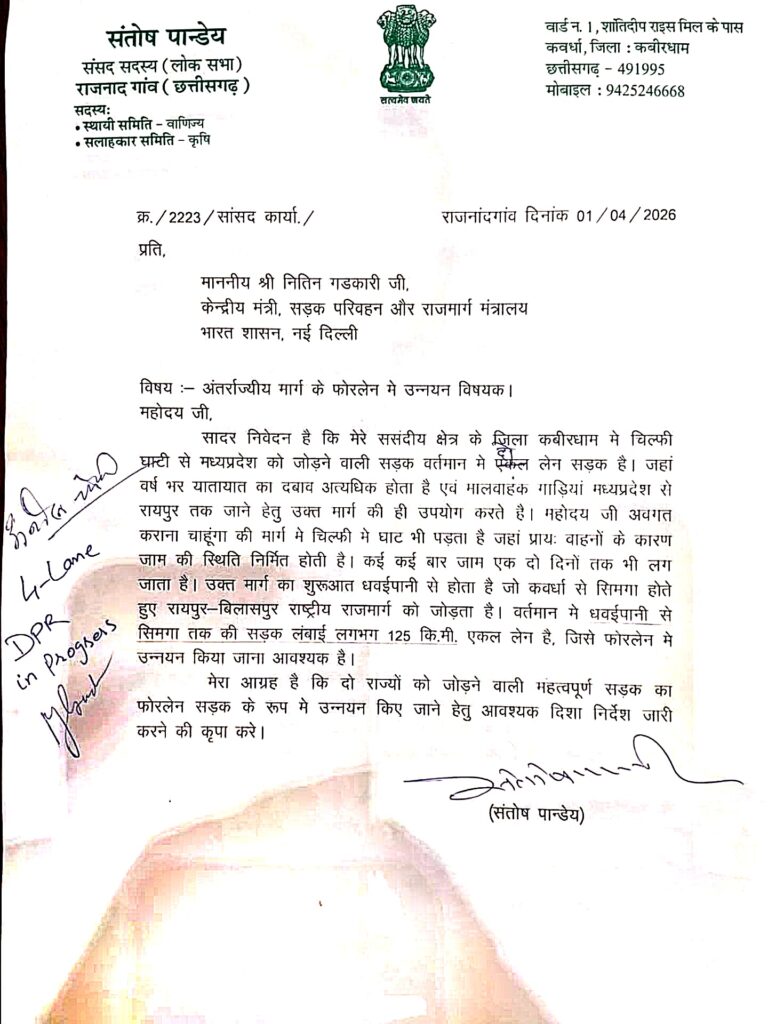 संतोष पाण्डेय
संसद सदस्य (लोक सभा)
राजनाद गांव (छत्तीसगढ़)
सदस्य:
• स्थायी समिति – वाणिज्य
• सलाहकार समिति – कृषि
सत्यमेव जयते
वार्ड न. 1, शांतिदीप राइस मिल के पास
कवर्धा, जिला : कबीरधाम
छत्तीसगढ़ – 491995
मोबाइल : 9425246668
क्र./2223/सांसद कार्या./
राजनांदगांव दिनांक 01/04/2026
प्रति,
माननीय श्री नितिन गडकारी जी,
केन्द्रीय मंत्री, सड़क परिवहन और राजमार्ग मंत्रालय
भारत शासन, नई दिल्ली
विषय :– अंतर्राज्यीय मार्ग के फोरलेन मे उन्नयन विषयक।
महोदय जी,
सादर निवेदन है कि मेरे ससंदीय क्षेत्र के जिला कबीरधाम मे चिल्फी
घाटी से मध्यप्रदेश को जोड़ने वाली सड़क वर्तमान मे एकल दो लेन सड़क है। जहां
वर्ष भर यातायात का दबाव अत्यधिक होता है एवं मालवाहक गाड़ियां मध्यप्रदेश से
रायपुर तक जाने हेतु उक्त मार्ग की ही उपयोग करते है। महोदय जी अवगत
कराना चाहूंगा की मार्ग मे चिल्फी मे घाट भी पड़ता है जहां प्रायः वाहनों के कारण
जाम की स्थिति निर्मित होती है। कई कई बार जाम एक दो दिनों तक भी लग
जाता है। उक्त मार्ग का शुरूआत धवईपानी से होता है जो कवर्धा से सिमगा होते
हुए रायपुर–बिलासपुर राष्ट्रीय राजमार्ग को जोड़ता है। वर्तमान मे धवईपानी से
सिमगा तक की सड़क लंबाई लगभग 125 कि.मी. एकल लेन है, जिसे फोरलेन मे
उन्नयन किया जाना आवश्यक है।
मेरा आग्रह है कि दो राज्यों को जोड़ने वाली महत्वपूर्ण सड़क का
फोरलेन सड़क के रूप मे उन्नयन किए जाने हेतु आवश्यक दिशा निर्देश जारी
करने की कृपा करे।
(संतोष पाण्डेय)
4-Lane
DPR
in progress